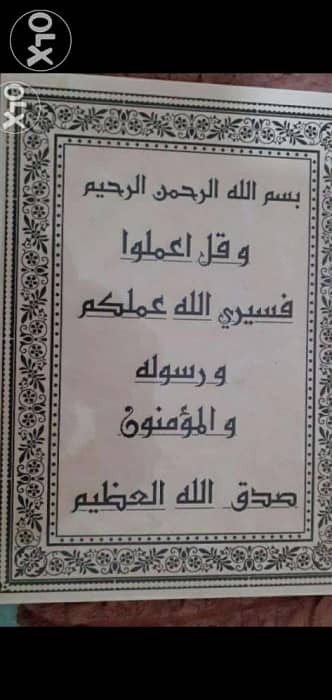 OLX
OLX
بسم الله الرحمن الرحيم
و قل اعملوا
فسيري الله عملكم
و رسوله
و المؤمنون
صدق الله العظيم